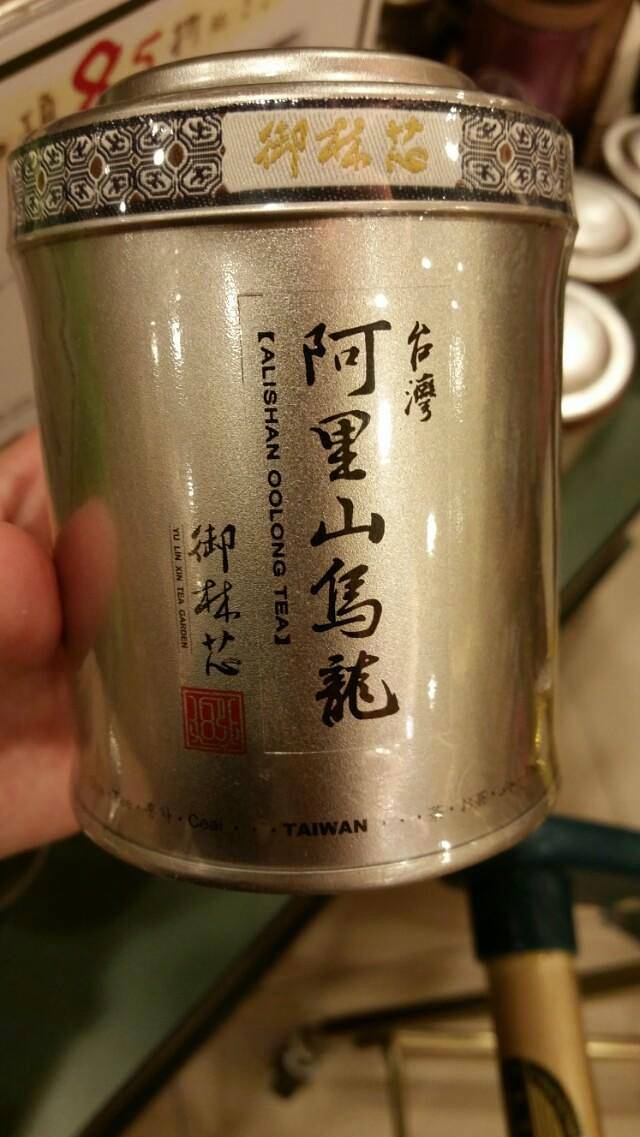 8.5折
御林芯
台灣
阿里山烏龍
【ALISHAN OOLONG TEA】
御林芯
YU LIN XIN TEA GARDEN
Ceai · · · TAIWAN · · · 茶 · お茶